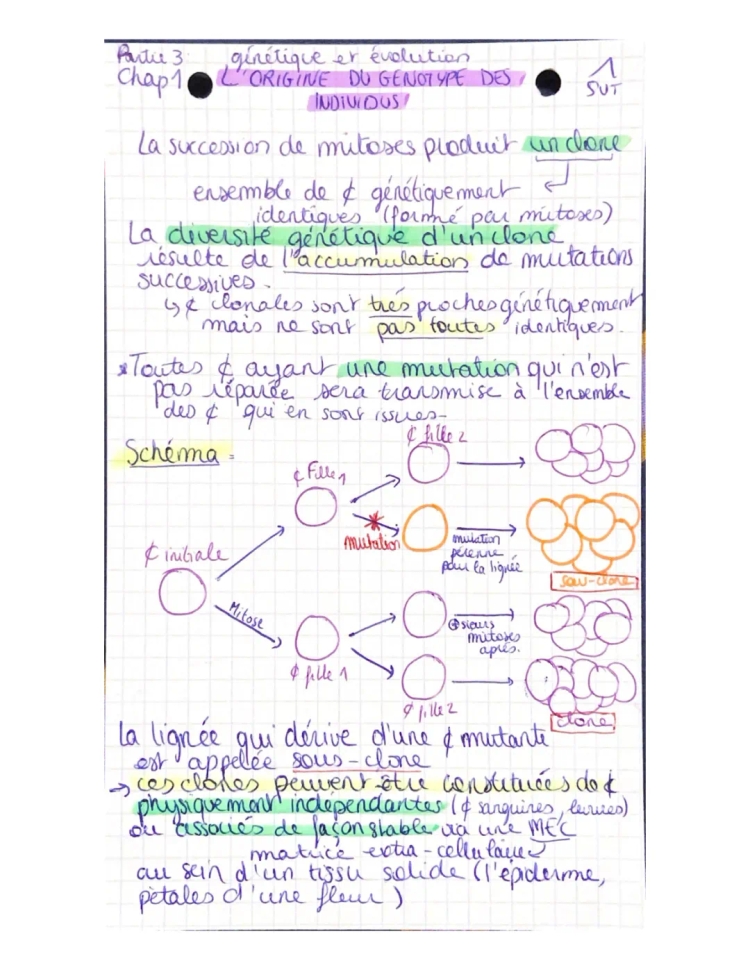 Partie 3 génétique et évolution
Chap 1 L'ORIGINE DU GENOTYPE DES 1
INDIVIDUS SVT
La succession de mitoses produit un clone
ensemble de ¢ génétiquement
identiques (formé par mitoses)
La diversité génétique d'un clone
résulte de l'accumulation de mutations
successives.
↳ ¢ clonales sont très proches génétiquement
mais ne sont pas toutes identiques.
* Toutes ¢ ayant une mutation qui n'est
pas réparée sera transmise à l'ensemble
des ¢ qui en sont issues-
Schéma =
¢ fille 2
¢ Fille 1
mutation
mutation
pérenne
pour la lignée
sous-clone
¢ initiale
Mitose
⊕sieurs
mitoses
après.
¢ fille 1
¢ fille 2
clone
La lignée qui dérive d'une ¢ mutante
est appelée sous-clone
→ ces clones peuvent être constituées de ¢
physiquement indépendantes (¢ sanguines, levures)
ou associés de façon stable via une MEC
matrice extra-cellulaire
au sein d'un tissu solide (l'épiderme,
pétales d'une fleur)